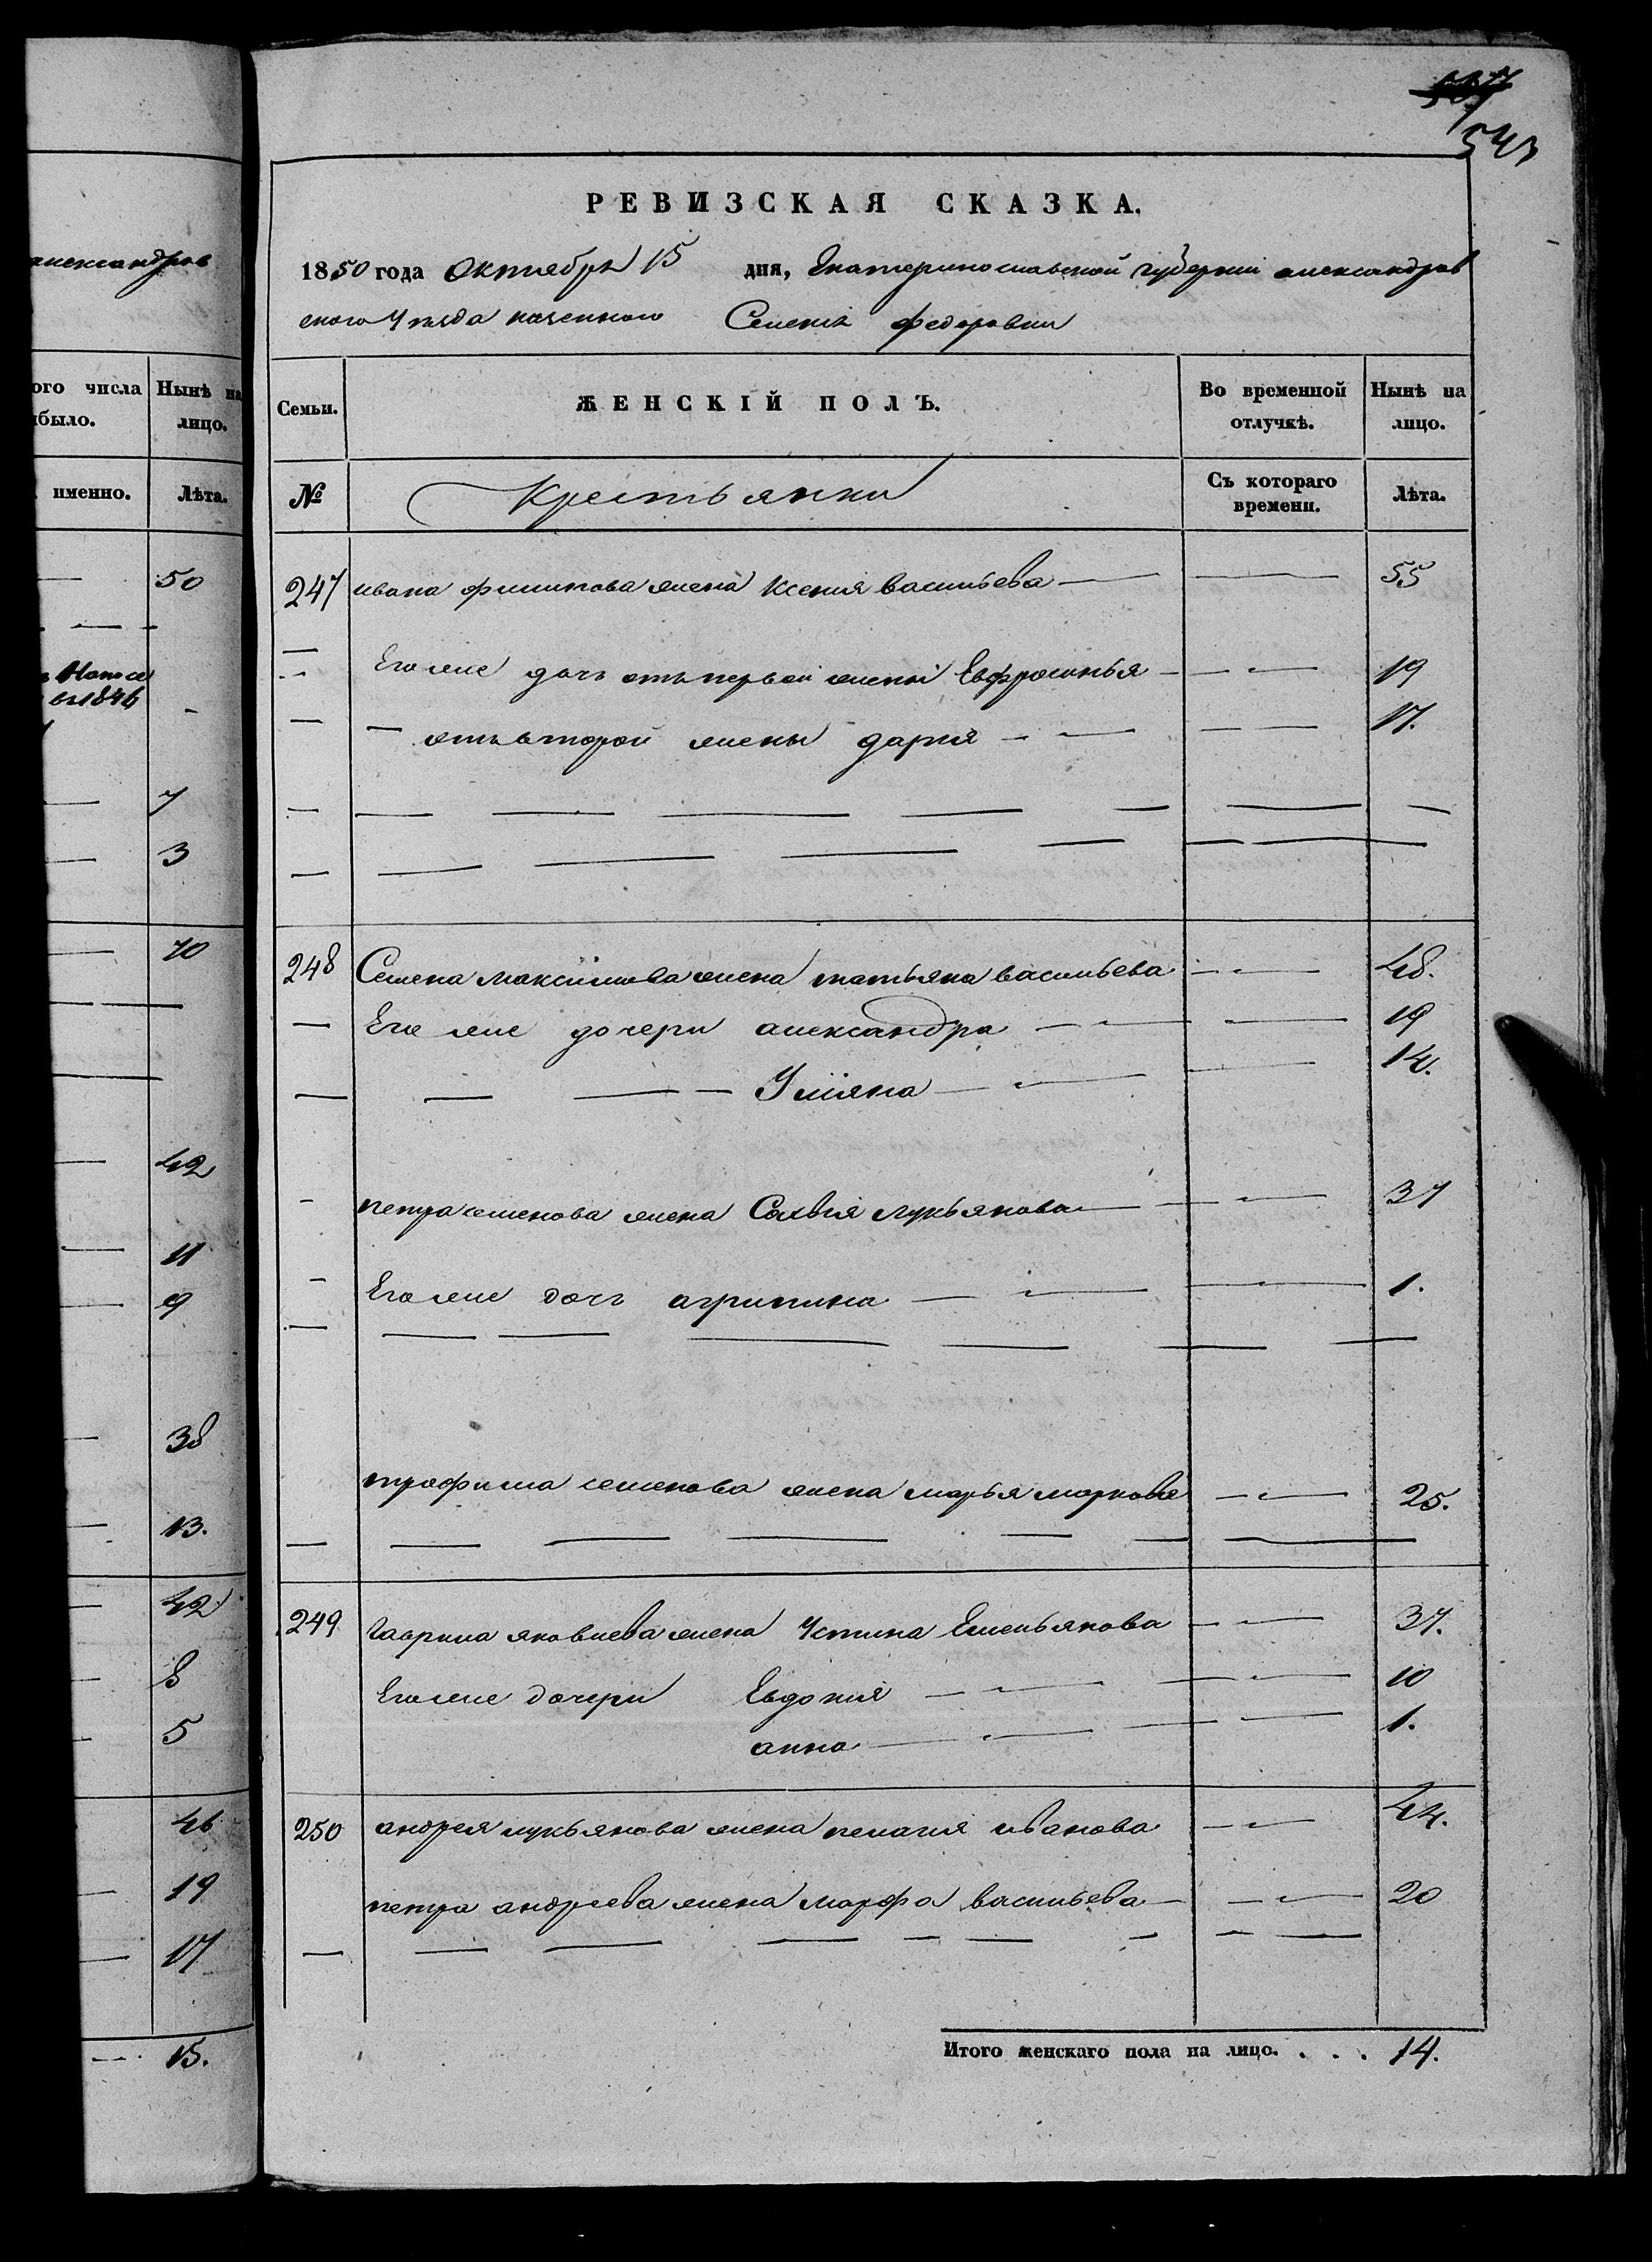 александров
ого числа Нынѣ на
было. лицо.
именно. Лѣта.
50
7
3
70
42
11
9
38
13.
42
8
5
46
19
17
15.
543
РЕВИЗСКАЯ СКАЗКА.
1850 года Октября 15 дня, Екатеринославской губерніи александров
ского уѣзда казенного Селенія федоровки
Семьи. ЖЕНСКІЙ ПОЛЪ. Во временной отлучкѣ. Нынѣ на лицо.
№ Крестьянки Съ котораго времени. Лѣта.
247 ивана филипова жена Ксения васильева — — 55
Его же дочь отъ первой жены Евфросинья — — 19
— отъ второй жены дария — — 17.
248 Семена максимова жена татьяна васильева — — 48.
Его же дочери александра — — 19
— — Ульяна — — 14.
петра семенова жена Сахвия лукьянова — — 37
Его же дочь агрипина — — 1.
трофима семенова жена марья маркова — — 25.
249 гаврила яковлева жена Устина Емельянова — — 37.
Его же дочери Евдокия — — 10
анна — — 1.
250 андрея лукьянова жена пелагия иванова — — 44.
петра андреева жена марфа васильева — — 20
Итого женскаго пола на лицо. . . . 14.